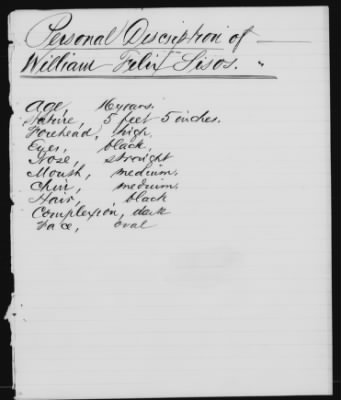 Personal Description of
William Felix Sisos.
Age, 16 years.
Stature, 5 feet 5 inches.
Forehead, high.
Eyes, black,
Nose, straight
Mouth, medium.
Chin, medium.
Hair, black
Complexion, dark
Face, oval